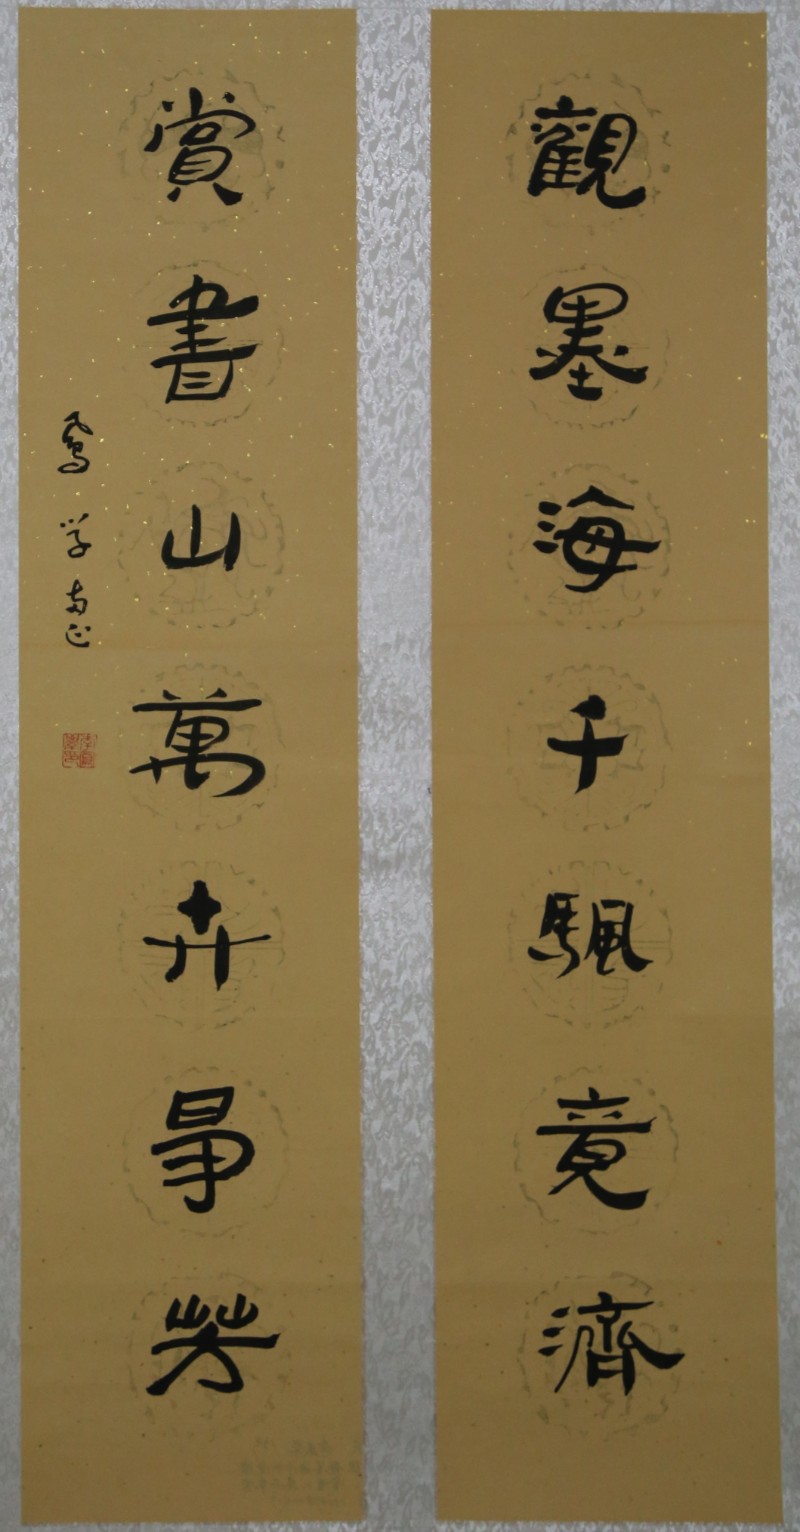 觀墨海千颿竟濟
賞書山萬卉爭芳